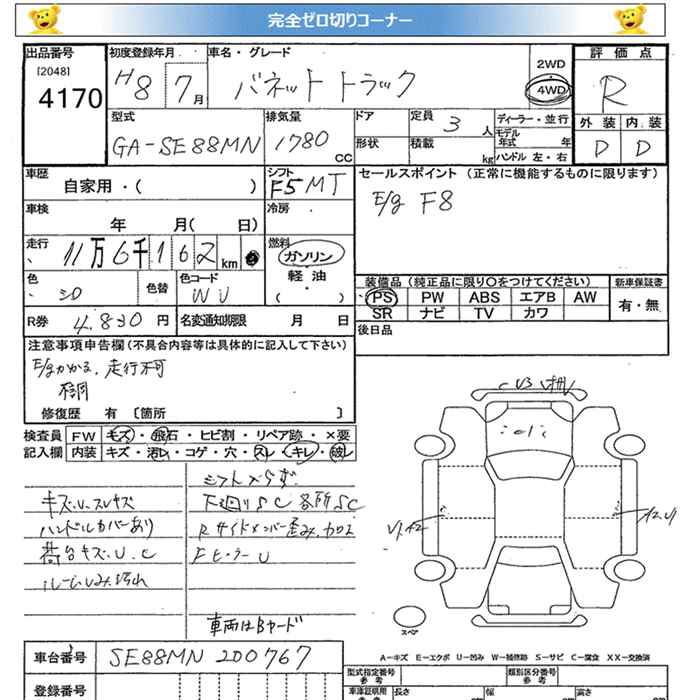 完全ゼロ切りコーナー
出品番号 初度登録年月 車名・グレード 評価点
[2048]
4170
H8 7月 バネットトラック 2WD
4WD R
型式 排気量 ドア 定員 3 人 ディーラー・並行 外装 内装
GA-SE88MN 1780 CC 形状 積載 kg モデル年式 年 D D
ハンドル 左・右
車歴 シフト セールスポイント (正常に機能するものに限ります)
自家用・( ) F5 MT E/g F8
車検 冷房
年 月( 日)
走行 燃料
11万6千162 km ガソリン
軽油
( ・ )
色 シロ 色替 色コード WU
装備品 (純正品に限り○をつけてください) 新車保証書
PS PW ABS エアB AW 有・無
SR ナビ TV カワ
R券 4,830 円 名変通知期限 月 日
後日品
注意事項申告欄(不具合内容等は具体的に記入して下さい)
E/gかかる、走行不可
修復歴 有 [箇所 ]
検査員 FW キズ・飛石・ヒビ割・リペア跡・×要
記入欄 内装 キズ・汚レ・コゲ・穴・スレ・キレ・破レ
シフト入らず
キズ.U.スレキズ
下廻りSC 各所SC
ハンドルカバーあり
Rサイドメンバー歪み.
荷台キズ.U.C
Fピラー U
車両はBカード
U3
A2.U
スペア
A-キズ E-エクボ U-凹み W-補修跡 S-サビ C-腐食 XX-交換済
車台番号 SE88MN 200767
型式指定番号 参考 類別区分番号 参考
登録番号 車庫証明用 参考 長さ 幅 高さ